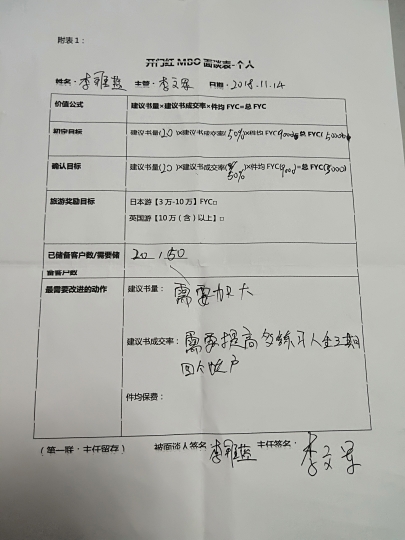 附表1：
开门红MBO面谈表-个人
姓名：李雅燕 主管：李文军 日期：2018.11.14
价值公式 建议书量×建议书成交率×件均FYC=总FYC
初定目标 建议书量(20)×建议书成交率(50%)×件均FYC(9000)=总FYC(
确认目标 建议书量(20)×建议书成交率(50%)×件均FYC(9000)=总FYC(
旅游奖励目标 日本游【3万-10万】FYC□
英国游【10万（含）以上】□
已储备客户数/需要储备客户数 20 / 50
最需要改进的动作 建议书量：需要加大
建议书成交率：需要提高多练习
件均保费：
（第一联：主任留存） 被面谈人签名：李雅燕 主任签名：李文军